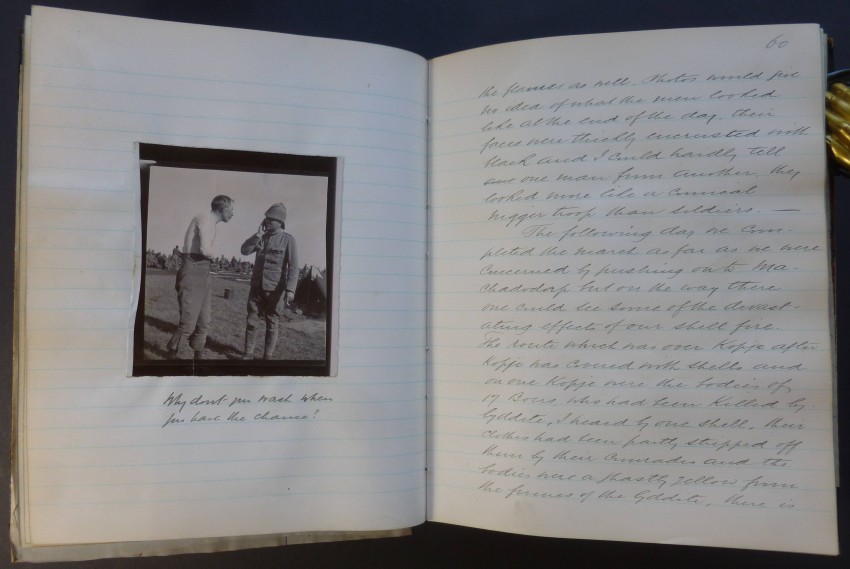 Why dont you wash when
you have the chance?
60
the flames as well. Photos would give
no idea of what the men looked
like at the end of the day, their
faces were thickly encrusted with
black and I could hardly tell
one man from another, they
looked more like a comical
nigger troop than soldiers. —
The following day we com-
pleted the march as far as we were
concerned by pushing on to Ma-
chadodorp but on the way there
one could see some of the devast-
ating effects of our shell fire.
The route which was over Kopje after
Kopje was covered with shells and
on one Kopje were the bodies of
17 Boers, who had been killed by
lyddite, I heard by one shell. Their
clothes had been partly stripped off
them by their comrades and the
bodies were a ghastly yellow from
the fumes of the lyddite, there is